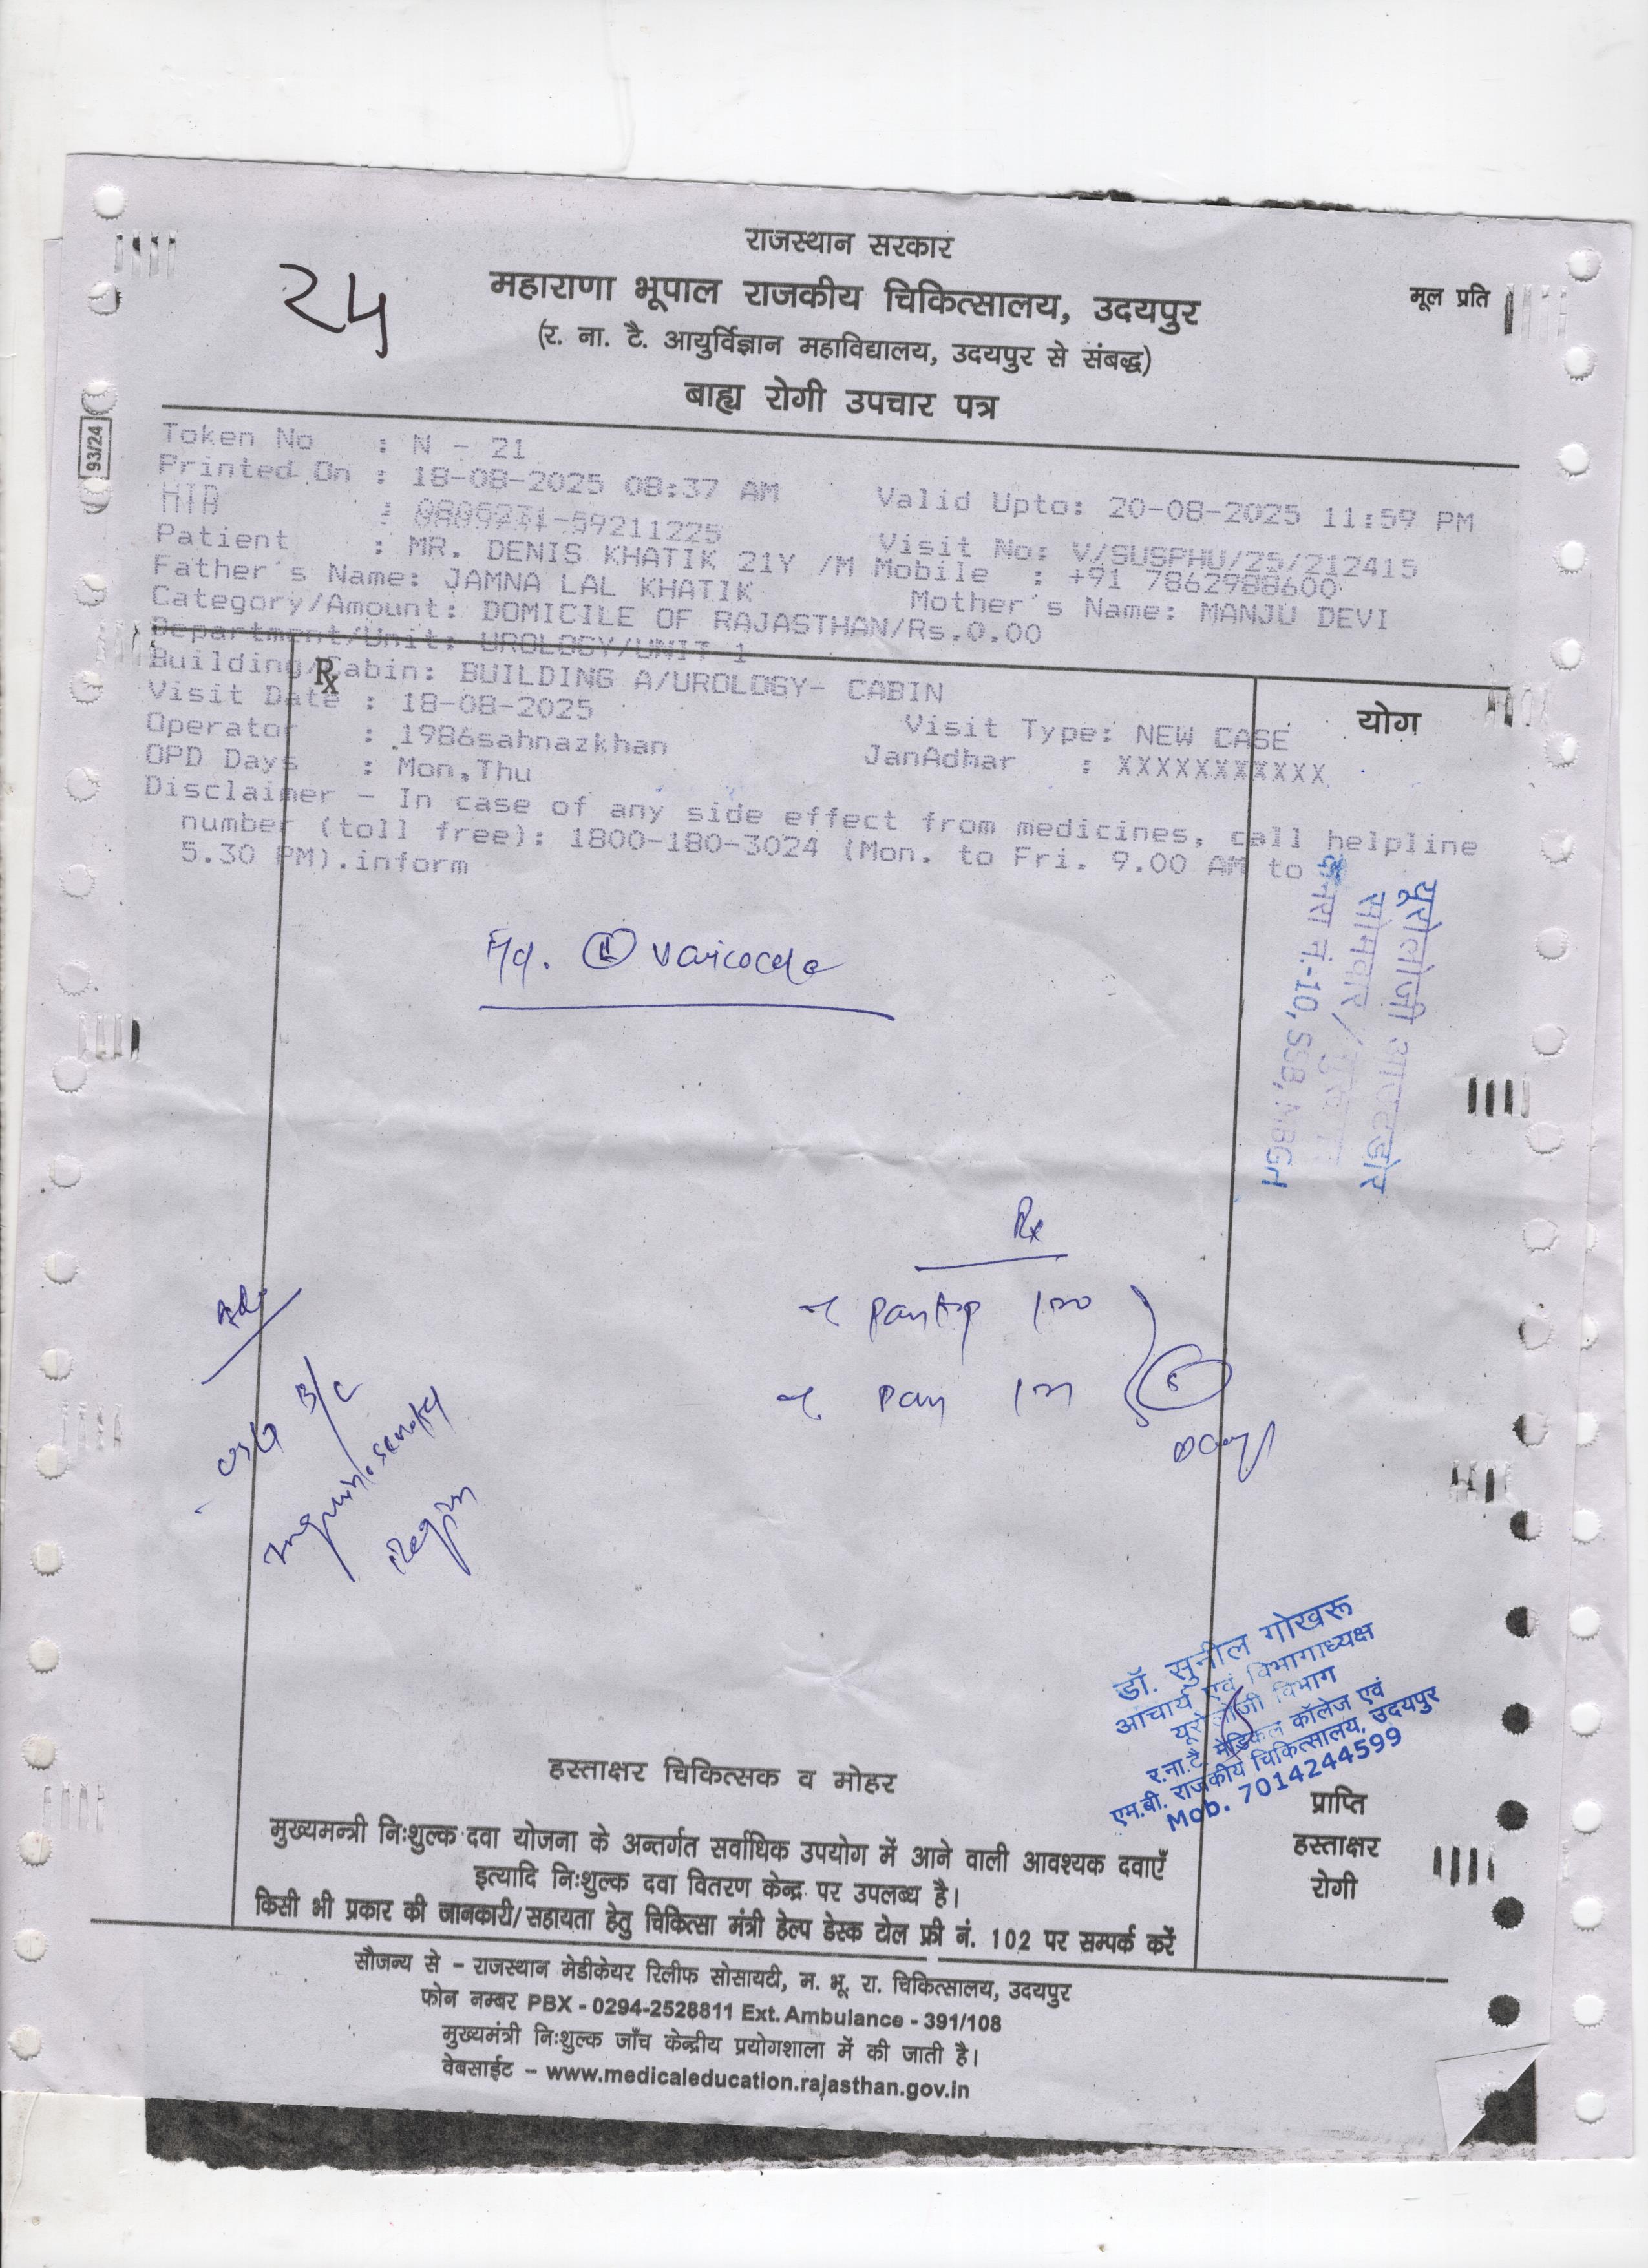 राजस्थान सरकार
महाराणा भूपाल राजकीय चिकित्सालय, उदयपुर
मूल प्रति
(र. ना. टै. आयुर्विज्ञान महाविद्यालय, उदयपुर से संबद्ध)
बाह्य रोगी उपचार पत्र
२५
93/24
Token No : N - 21
Printed On : 18-08-2025 08:37 AM Valid Upto: 20-08-2025 11:59 PM
Visit No: V/SUSPHU/25/212415
Patient : MR. DENIS KHATIK 21Y /M Mobile : +91 7862988600
Father's Name: JAMNA LAL KHATIK Mother's Name: MANJU DEVI
Category/Amount: DOMICILE OF RAJASTHAN/Rs.0.00
Department/Unit: UROLOGY/UNIT 1
Building/Cabin: BUILDING A/UROLOGY- CABIN
Rx
योग
Visit Date : 18-08-2025 Visit Type: NEW CASE
Operator : 1986sahnazkhan JanAdhar : XXXXXXXXXXX
OPD Days : Mon,Thu
Disclaimer - In case of any side effect from medicines, call helpline
number (toll free): 1800-180-3024 (Mon. to Fri. 9.00 AM to
5.30 PM).inform
यूरोलोजी आउटडोर
सोमवार /
नं.-10, SSB, MBGH
varicocele
Rx
Pan 
Adv
USG
Region
डॉ. सुनील गोखरू
आचार्य एवं विभागाध्यक्ष
यूरोलोजी विभाग
र.ना.टै. मेडिकल कॉलेज एवं
एम.बी. राजकीय चिकित्सालय, उदयपुर
Mob. 7014244599
हस्ताक्षर चिकित्सक व मोहर
प्राप्ति
हस्ताक्षर
रोगी
मुख्यमन्त्री निःशुल्क दवा योजना के अन्तर्गत सर्वाधिक उपयोग में आने वाली आवश्यक दवाएँ
इत्यादि निःशुल्क दवा वितरण केन्द्र पर उपलब्ध है।
किसी भी प्रकार की जानकारी/सहायता हेतु चिकित्सा मंत्री हेल्प डेस्क टोल फ्री नं. 102 पर सम्पर्क करें
सौजन्य से - राजस्थान मेडीकेयर रिलीफ सोसायटी, म. भू. रा. चिकित्सालय, उदयपुर
फोन नम्बर PBX - 0294-2528811 Ext. Ambulance - 391/108
मुख्यमंत्री निःशुल्क जाँच केन्द्रीय प्रयोगशाला में की जाती है।
वेबसाईट - www.medicaleducation.rajasthan.gov.in